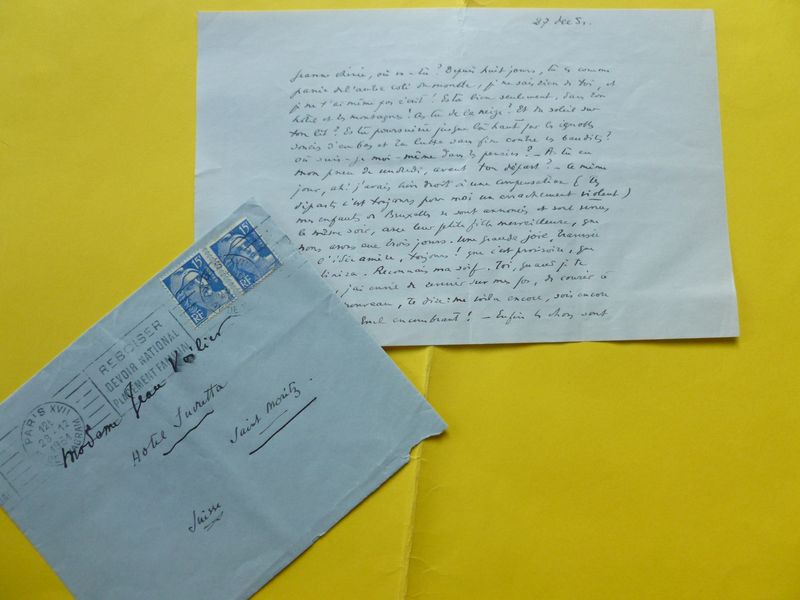 27 dec 51.
Jeanne chérie, où es-tu? Depuis huit jours, tu es comme
de l'autre coté du monde, je ne sais rien de toi, et
je ne t'ai même pas écrit! Es tu bien seulement, dans ton
hôtel et tes montagnes? As tu de la neige? Et du soleil sur
ton lit? Es tu poursuivie jusque là haut par les ignobles
soucis d'en bas et la lutte sans fin contre les bandits?
où suis-je moi-même dans tes pensées? - As-tu eu
mon pneu de vendredi, avant ton départ? - Ce même
jour, ah! j'avais bien droit à une compensation (tes
départs c'est toujours pour moi un arrachement violent)
mes enfants de Bruxelles se sont annoncés et sont venus
le même soir, avec leur petite fille merveilleuse, que
nous avons eue trois jours. Une grande joie, traversée
l'idée amère, toujours! que c'est provisoire, que
. Reconnais ma soif. Toi, quand je te
, j'ai envie de revenir sur mes pas, de courir à
nouveau, te dire: me voilà encore, sois encore
encombrant! - Enfin les choses sont
15F
RF
15F
RF
REBOISER
DEVOIR NATIONAL
PLACEMENT FAMILIAL
PARIS XVII
28-12
1951
WAGRAM
Madame Jean Voilier
Hotel Suvretta
Saint Moritz.
Suisse